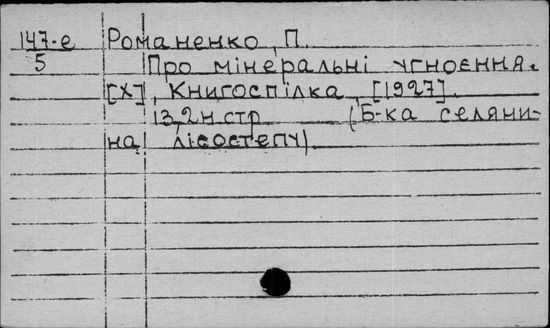 147-е Романенко, П.
5 Про мінеральні угноєння.
[Х], Книгоспілка, [1927].
13,2н.стр (Б-ка селяни-
на лісостепу)